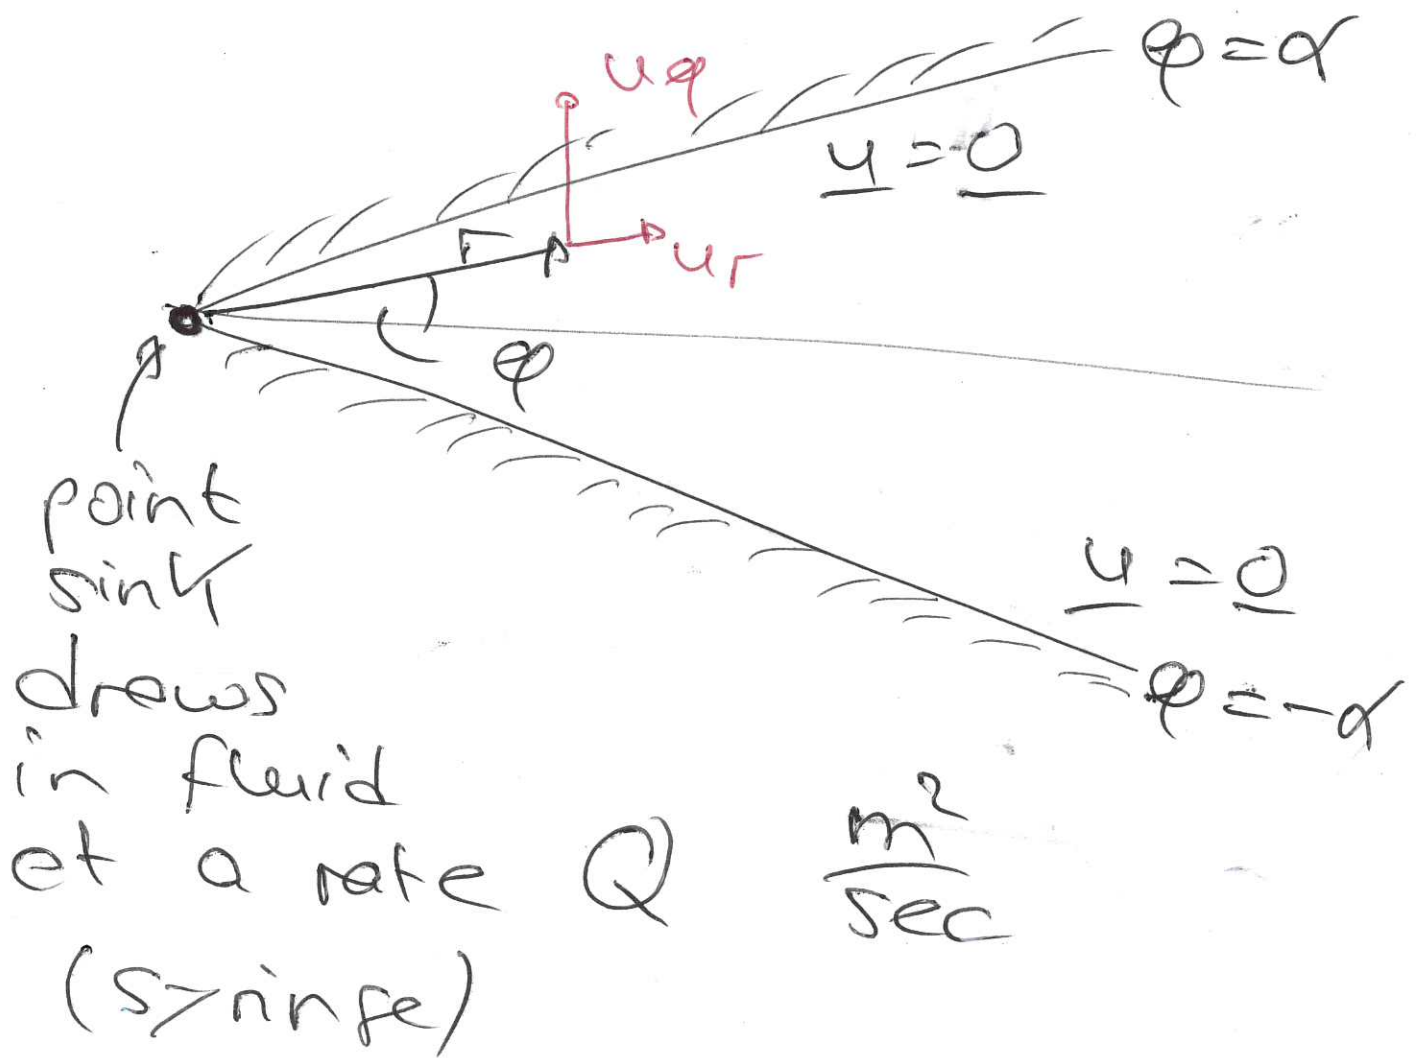 φ = α
uφ
u = 0
r
ur
φ
point
sink
draws
in fluid
at a rate Q m²/sec
(syringe)
u = 0
φ = -α